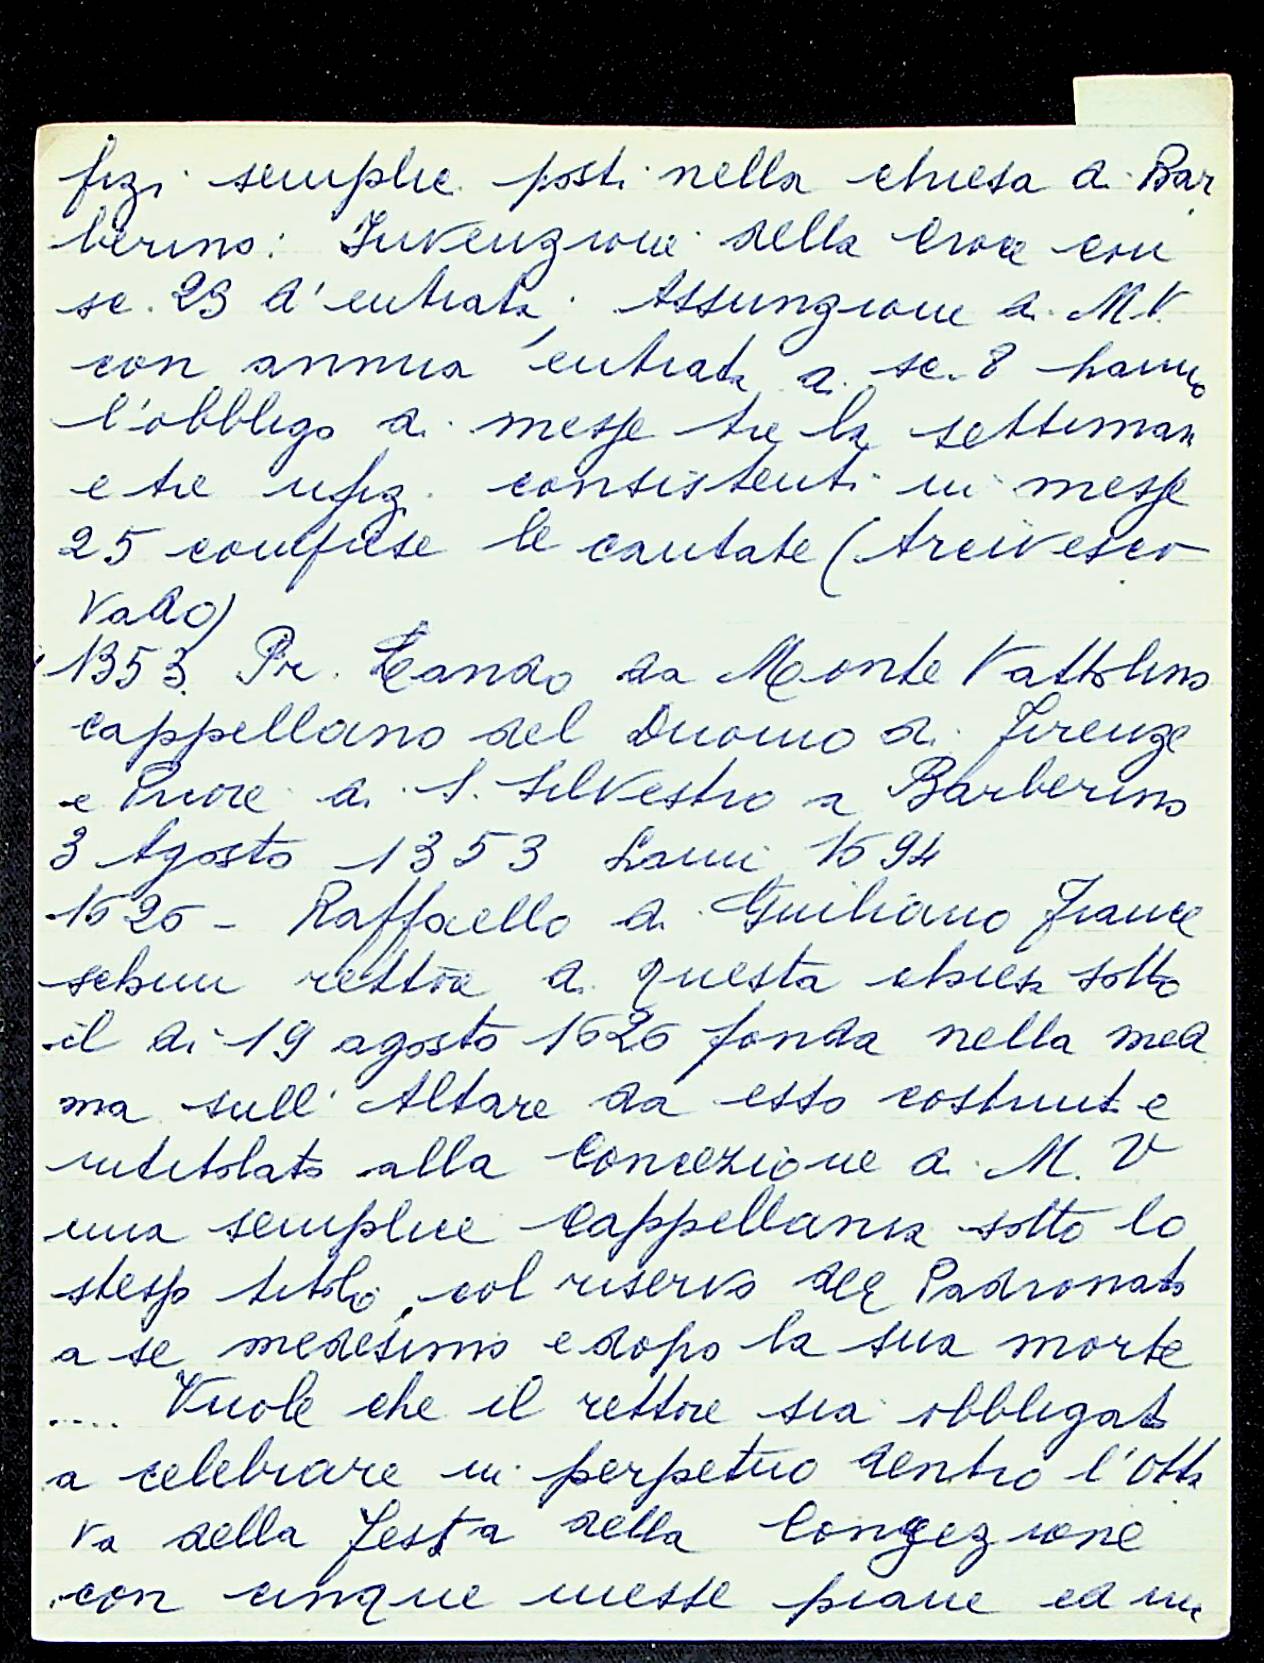 fizi semplici posti nella chiesa di Bar
berino: Invenzione della Croce con
sc. 29 d'entrata; Assunzione di M.V.
con annua entrata di sc. 8 hanno
l'obbligo di messe tre la settimana
e tre ufizi consistenti in messe
25 comprese le cantate (Arcivesco
vado)
1353 Pr. Lando da Monte Vattolino
cappellano del Duomo di Firenze
e Priore di S. Silvestro a Barberino
3 Agosto 1353 Lami 1694
1626 - Raffaello di Giuliano France
schini rettore di questa chiesa sotto
il di 19 agosto 1626 fonda nella med
ma sull'Altare da esso costruito e
intitolato alla Concezione di M. V
una semplice Cappellania sotto lo
stesso titolo, col riservo del Padronato
a se medesimo e dopo la sua morte
.... Vuole che il rettore sia obbligato
a celebrare in perpetuo dentro l'Otta
va della Festa della Concezione
con cinque messe piane ed una